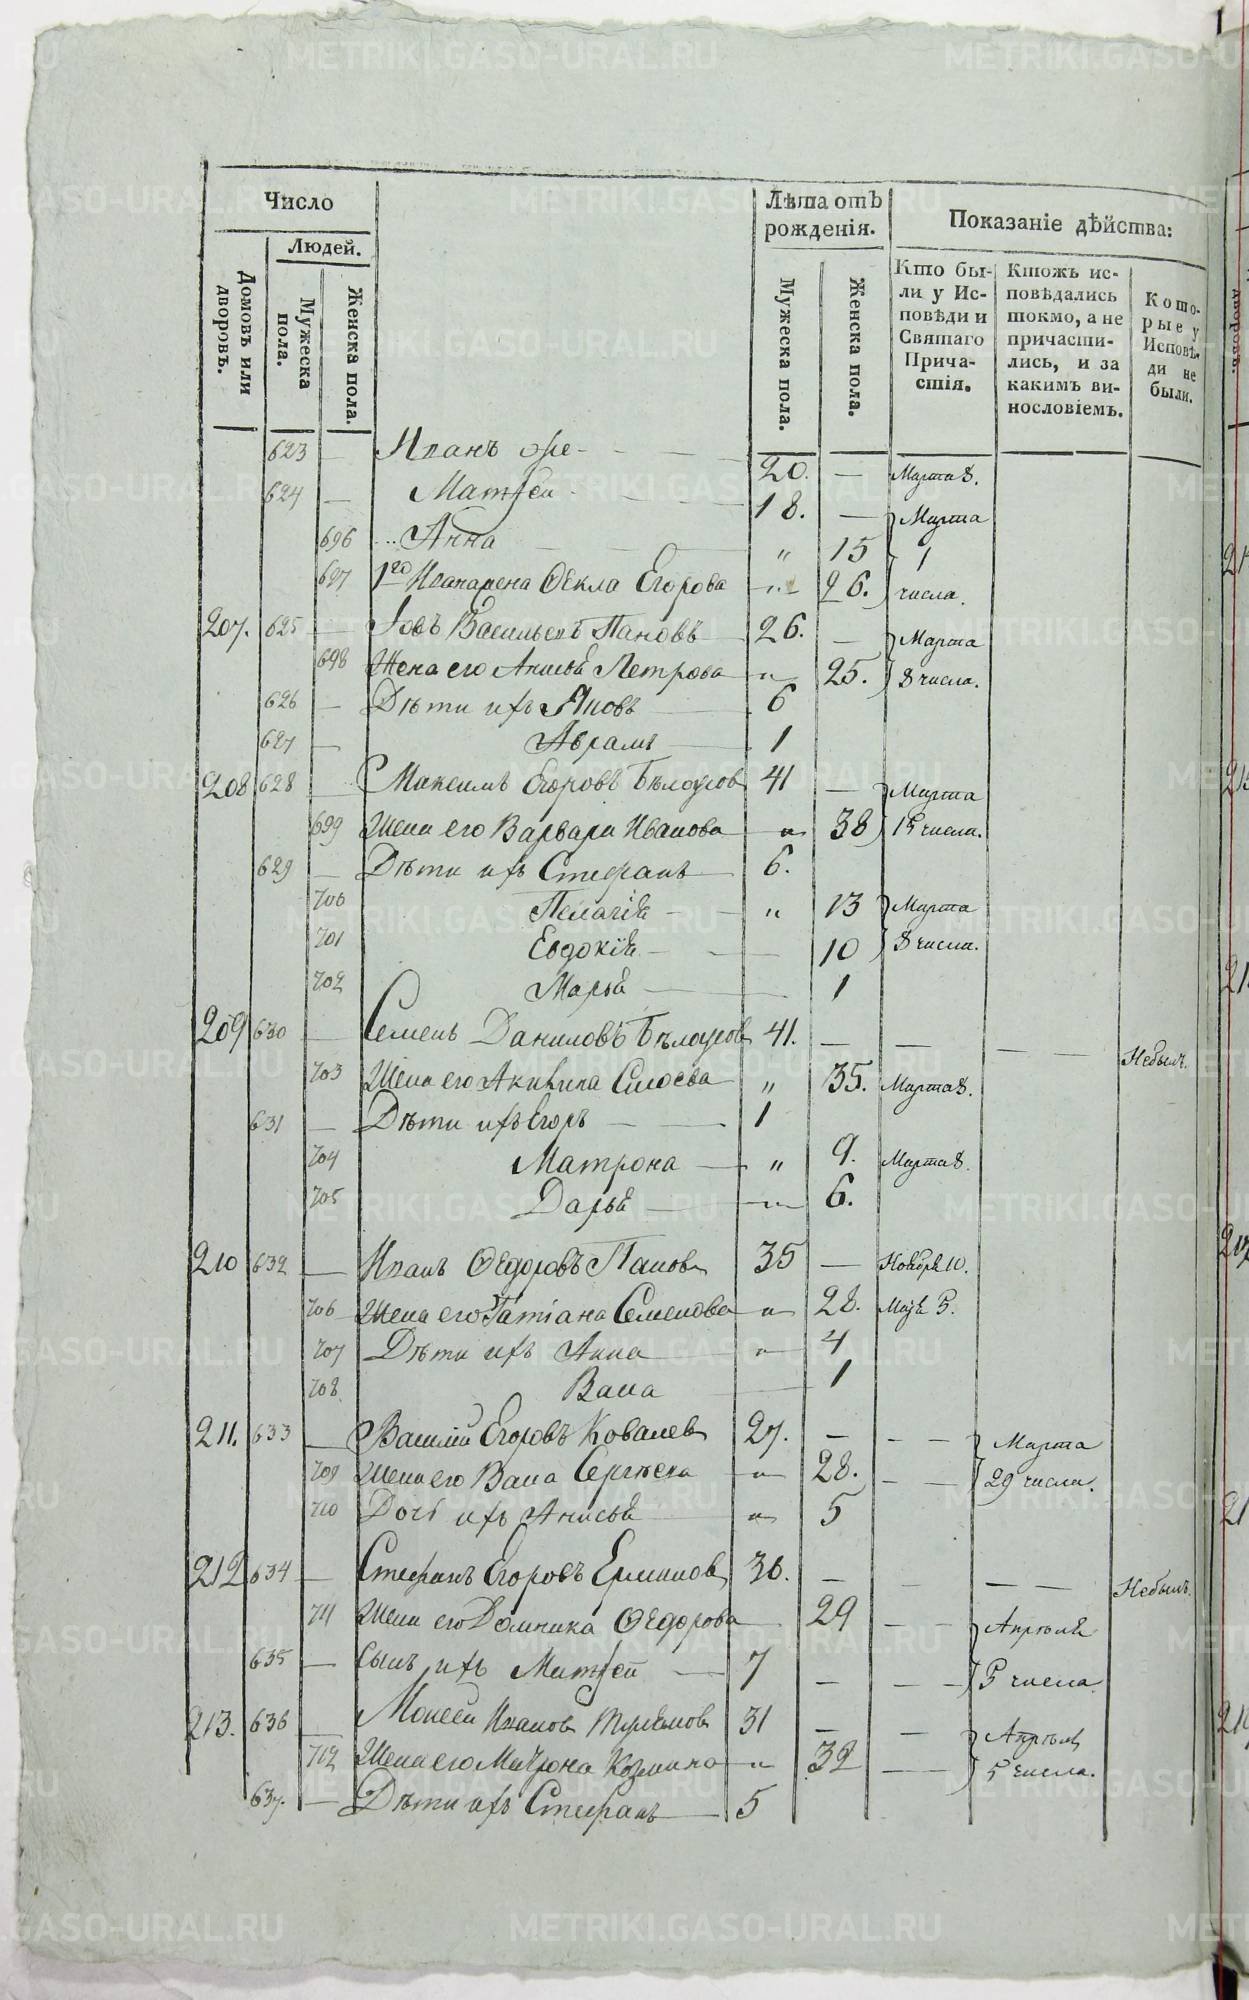 Число
Людей.
Домовъ или дворовъ.
Мужеска пола.
Женска пола.
Лѣта отъ рожденія.
Мужеска пола.
Женска пола.
Показаніе дѣйства:
Кто бы-
ли у Ис-
повѣди и
Святаго
Прича-
стія.
Ктожъ ис-
повѣдались
токмо, а не
причасти-
лись, и за
какимъ ви-
нословіемъ.
Кото-
рые у
Исповѣ-
ди не
были.
623 — Иванъ же - — — 20. — Марта 8.
624 — Матѳей - — — 18. — Марта
696 Анна — — — " 15 1
697 1го Ивана жена Ѳекла Егорова — " — 26. числа.
207. 625 — Іовъ Васильевъ Пановъ — 26. — Марта
698 Жена его Анисья Петрова — " 25. 8 числа.
626 — Дѣти ихъ Яковъ — 6
627 — Аврамъ — 1
208 628 — Максимъ Егоровъ Бѣлоусовъ 41 — Марта
699 Жена его Варвара Иванова — " 38 15 числа.
629 — Дѣти ихъ Стефанъ — 6.
700 Пелагія — — " 13 Марта
701 Евдокія — — 10 8 числа.
702 Марья — — 1
209 630 — Семенъ Даниловъ Бѣлоусовъ 41. — — — — Небылъ.
703 Жена его Акилина Сысоева — " 35. Марта 8.
631 — Дѣти ихъ Егоръ — — 1
704 Матрона — " 9. Марта 8.
705 Дарья — — " — 6.
210 632 — Иванъ Ѳедоровъ Пановъ 35 — Ноября 10.
706 Жена его Татіана Семенова — " 28. Маія 5.
707 Дѣти ихъ Анна — " — 4
708 Васа — 1
211. 633 — Василій Егоровъ Ковалевъ 27. — — — Марта
709 Жена его Васа Сергѣева — " 28. — — 29 числа.
710 Дочь ихъ Анисья — " 5
212 634 — Стефанъ Егоровъ Ермаковъ 36. — — — Небылъ.
711 Жена его Домника Ѳедорова — 29 — — Апрѣля
635 — Сынъ ихъ Матѳей — 7 — — — 5 числа.
213. 636 — Моисей Ивановъ 31 — — — Апрѣля
712 Жена его Матрона Козмина — " 32 — — 5 числа.
637. — Дѣти ихъ Стефанъ — 5
METRIKI.GASO-URAL.RU